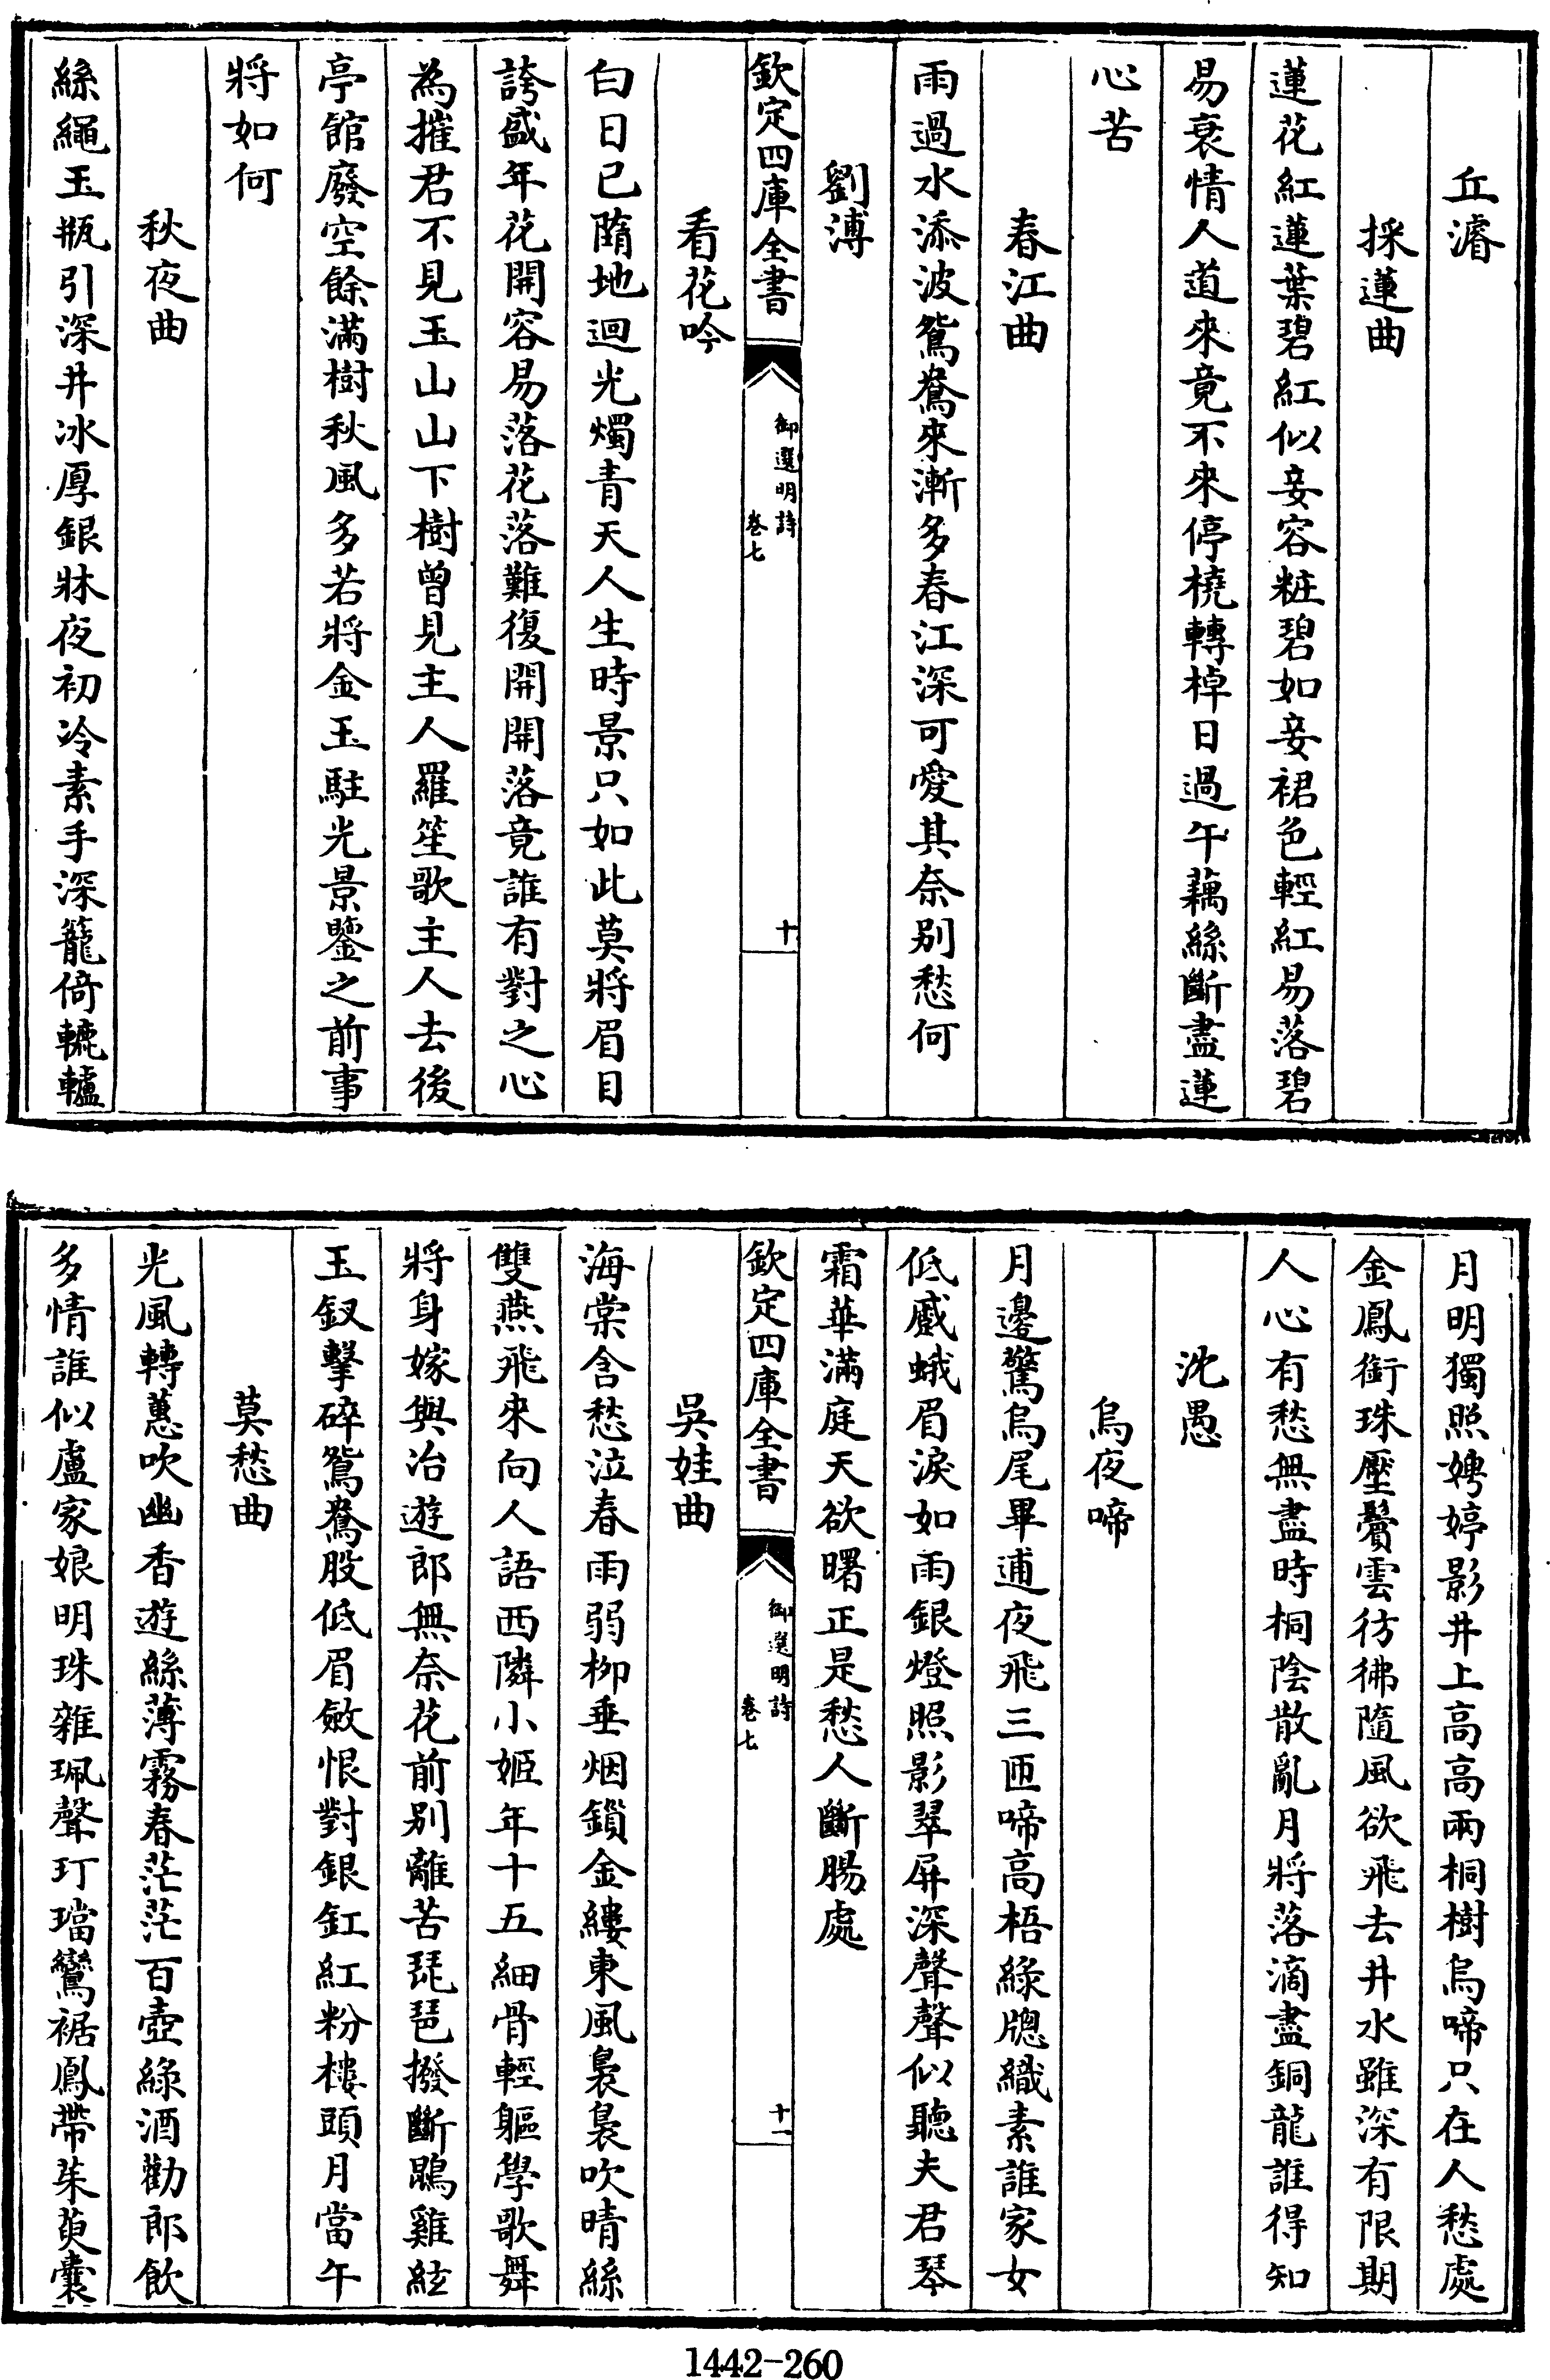 丘濬
採蓮曲
蓮花紅蓮葉碧紅似妾容粧碧如妾裙色輕紅易落碧
易衰情人道來竟不來停橈轉棹日過午藕絲斷盡蓮
心苦
春江曲
雨過水添波鴛鴦來漸多春江深可愛其奈别愁何
劉溥
欽定四庫全書
御選明詩
卷七
十
看花吟
白日已隋地迴光燭青天人生時景只如此莫將眉目
誇盛年花開容易落花落難復開開落竟誰有對之心
為摧君不見玉山山下樹曾見主人羅笙歌主人去後
亭館廢空餘滿樹秋風多若將金玉駐光景鑒之前事
將如何
秋夜曲
絲繩玉瓶引深井冰厚銀牀夜初冷素手深籠倚轆轤
月明獨照娉婷影井上高高兩桐樹烏啼只在人愁處
金鳳銜珠壓鬢雲彷彿隨風欲飛去井水雖深有限期
人心有愁無盡時桐陰散亂月將落滴盡銅龍誰得知
沈愚
烏夜啼
月邊驚烏尾畢逋夜飛三匝啼高梧綠牕織素誰家女
低蹙蛾眉淚如雨銀燈照影翠屏深聲聲似聽夫君琴
霜華滿庭天欲曙正是愁人斷腸處
欽定四庫全書
御選明詩
卷七
十一
吳娃曲
海棠含愁泣春雨弱柳垂烟鎖金縷東風裊裊吹晴絲
雙燕飛來向人語西隣小姬年十五細骨輕軀學歌舞
將身嫁與冶遊郎無奈花前别離苦琵琶撥斷鵾雞絃
玉釵擊碎鴛鴦股低眉斂恨對銀釭紅粉樓頭月當午
莫愁曲
光風轉蕙吹幽香遊絲薄霧春茫茫百壺綠酒勸郎飲
多情誰似盧家娘明珠雜珮聲玎璫鸞裾鳳帶茱萸囊
1442-260